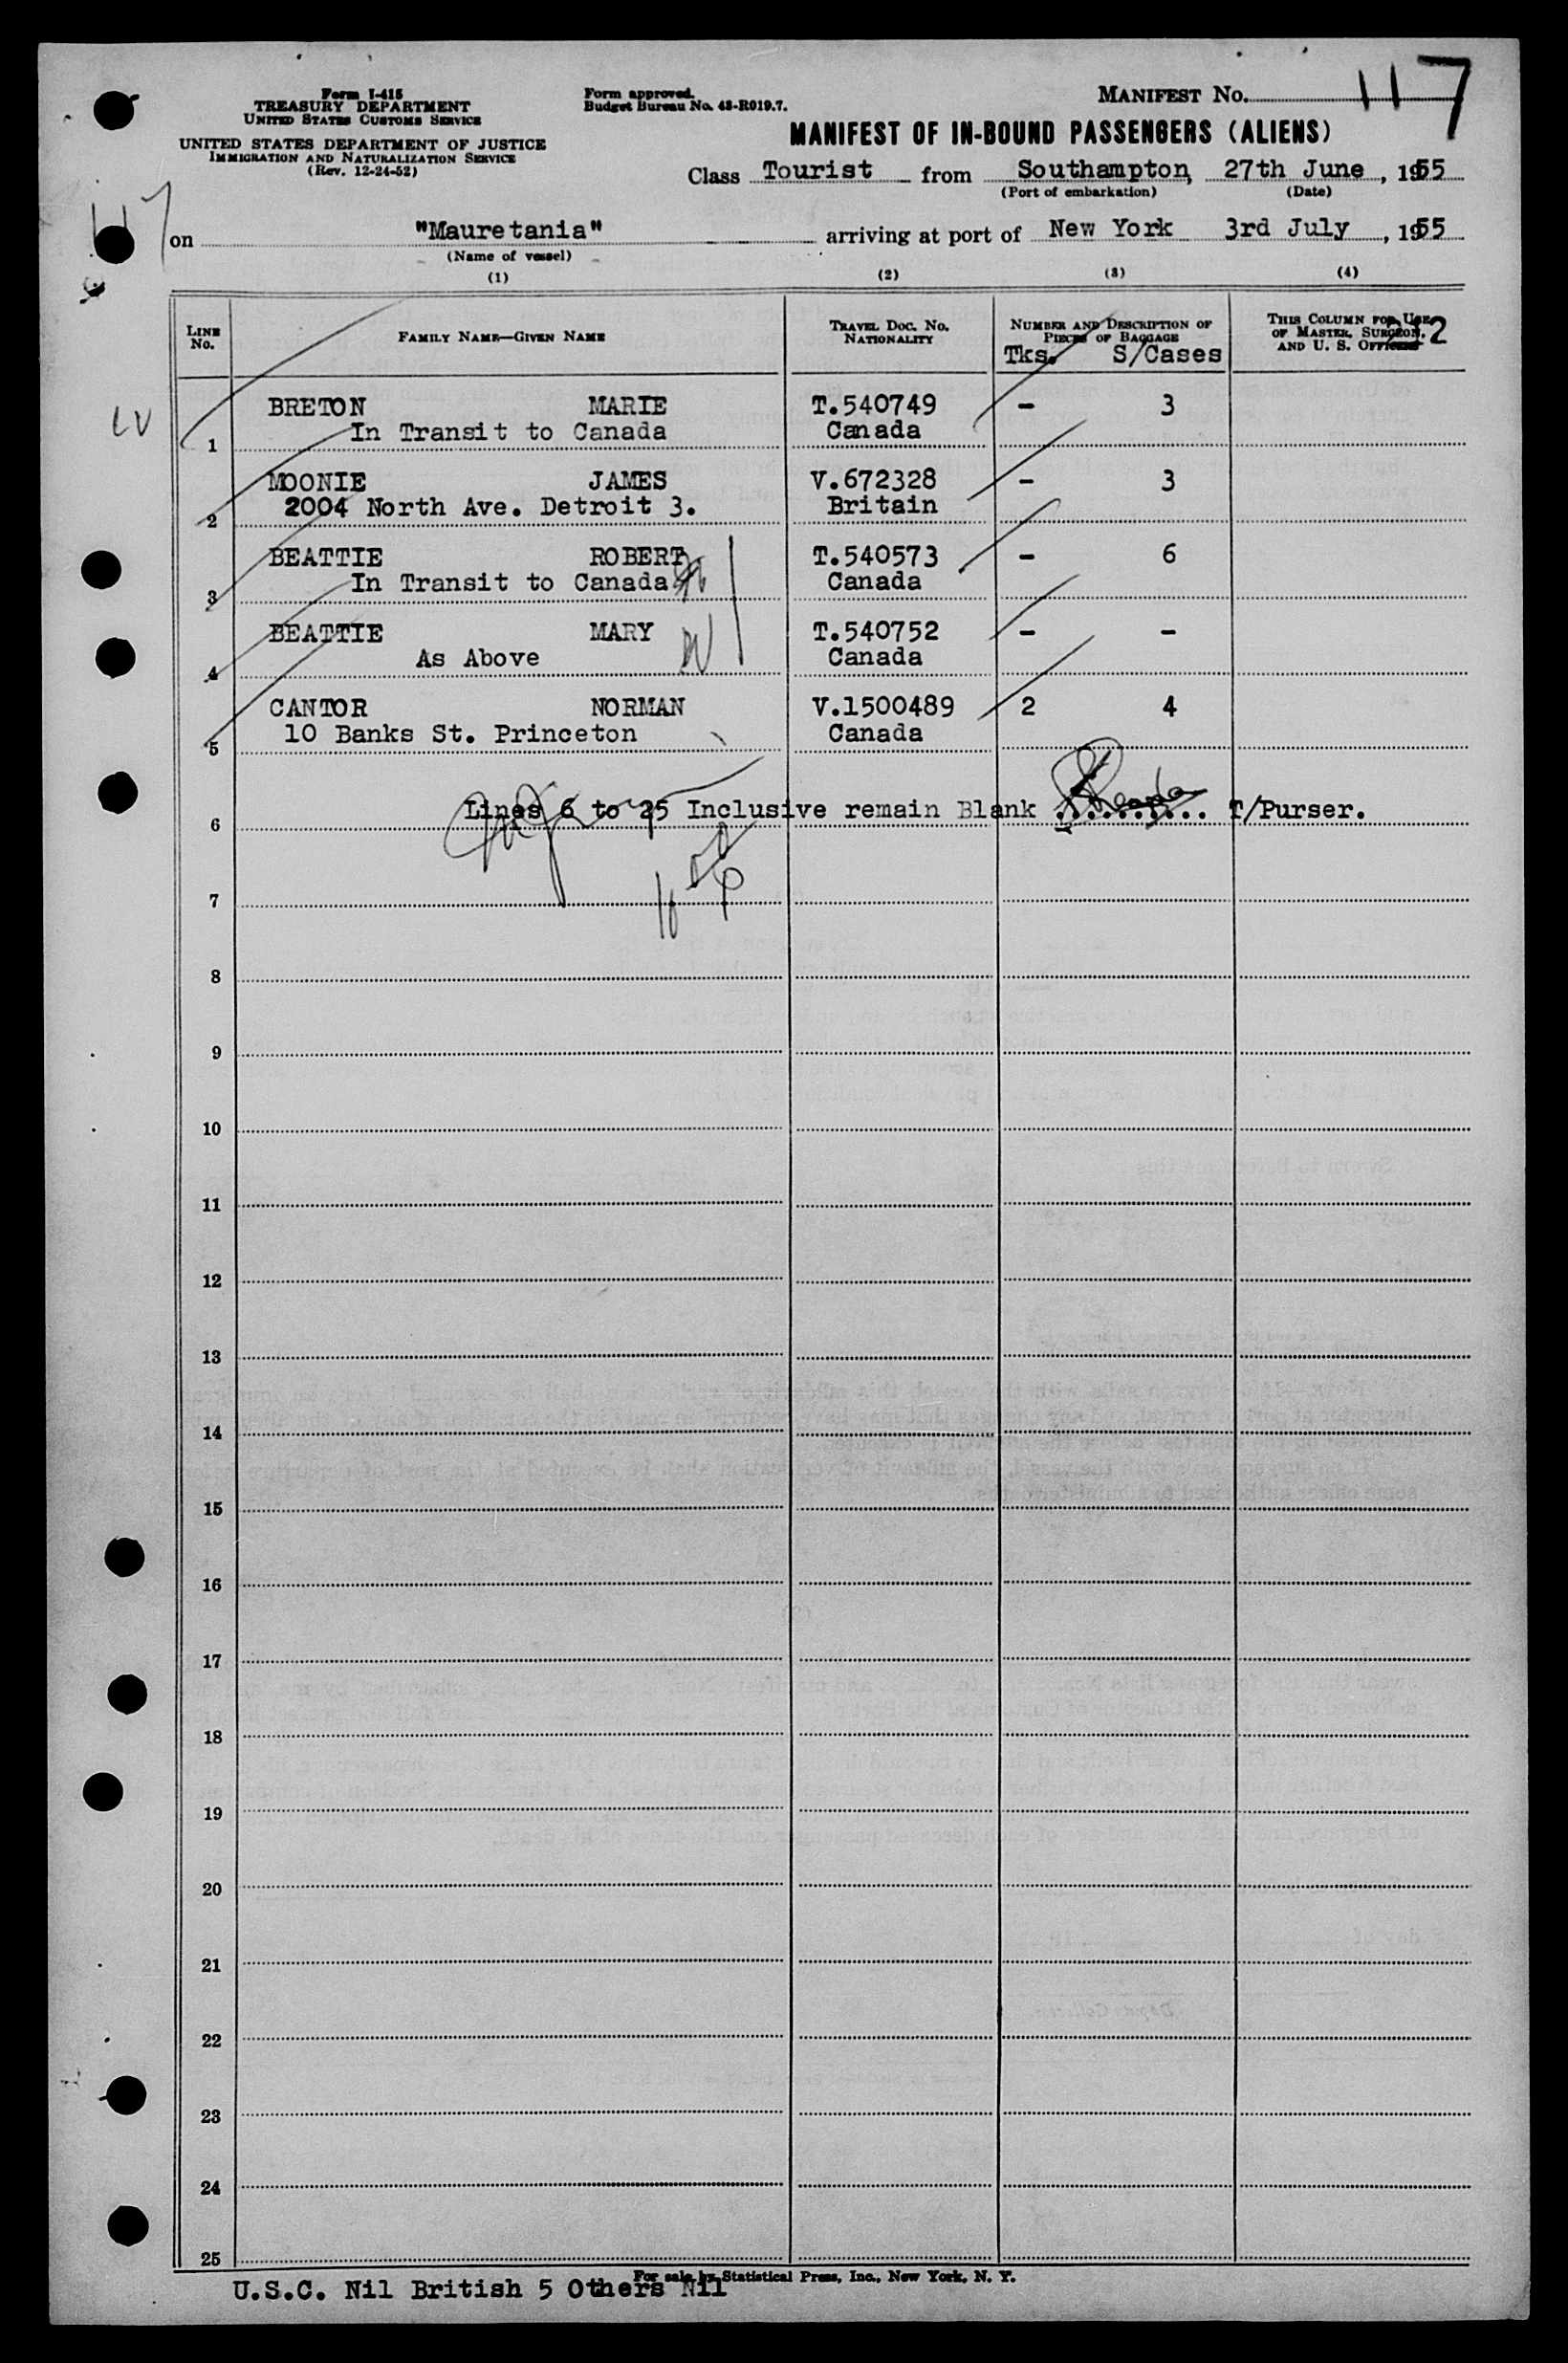 Form I-415
TREASURY DEPARTMENT
UNITED STATES CUSTOMS SERVICE
UNITED STATES DEPARTMENT OF JUSTICE
IMMIGRATION AND NATURALIZATION SERVICE
(Rev. 12-24-52)
Form approved.
Budget Bureau No. 43-R019.7.
MANIFEST No. 117
MANIFEST OF IN-BOUND PASSENGERS (ALIENS)
Class Tourist from Southampton, 27th June, 1955
(Port of embarkation) (Date)
117
on "Mauretania" arriving at port of New York 3rd July, 1955
(Name of vessel)
(1) (2) (3) (4)
LINE No. FAMILY NAME—GIVEN NAME TRAVEL DOC. No. NATIONALITY NUMBER AND DESCRIPTION OF PIECES OF BAGGAGE THIS COLUMN FOR USE OF MASTER, SURGEON, AND U. S. OFFICERS
Tks. S/Cases 212
LV
BRETON MARIE T.540749 - 3
1 In Transit to Canada Canada
MOONIE JAMES V.672328 - 3
2 2004 North Ave. Detroit 3. Britain
BEATTIE ROBERT T.540573 - 6
3 In Transit to Canada Canada
BEATTIE MARY T.540752 - -
4 As Above Canada
CANTOR NORMAN V.1500489 2 4
5 10 Banks St. Princeton Canada
6 Lines 6 to 25 Inclusive remain Blank .......... T/Purser.
7
8
9
10
11
12
13
14
15
16
17
18
19
20
21
22
23
24
25
For sale by Statistical Press, Inc., New York, N. Y.
U.S.C. Nil British 5 Others Nil